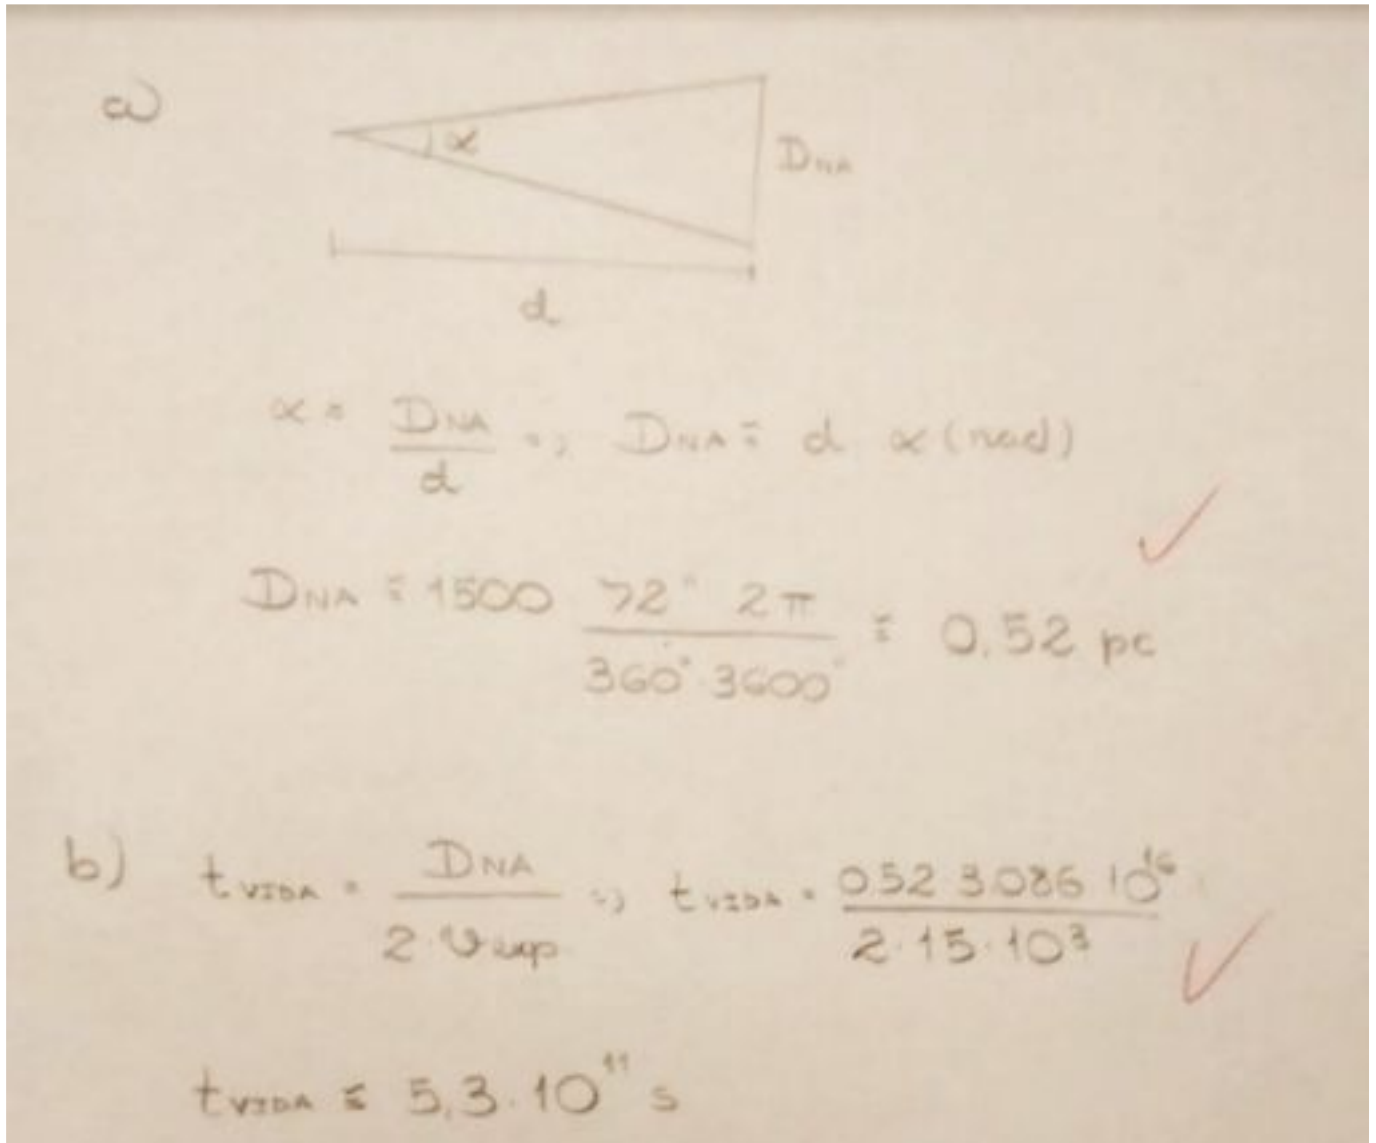 a)
α
D_NA
d
α = D_NA / d => D_NA = d α (rad)
D_NA = 1500 72" 2π / 360° 3600" = 0.52 pc
b) t_VIDA = D_NA / 2·v_exp => t_VIDA = 0.52 3.086 10^16 / 2·15·10^3
t_VIDA = 5,3·10^11 s